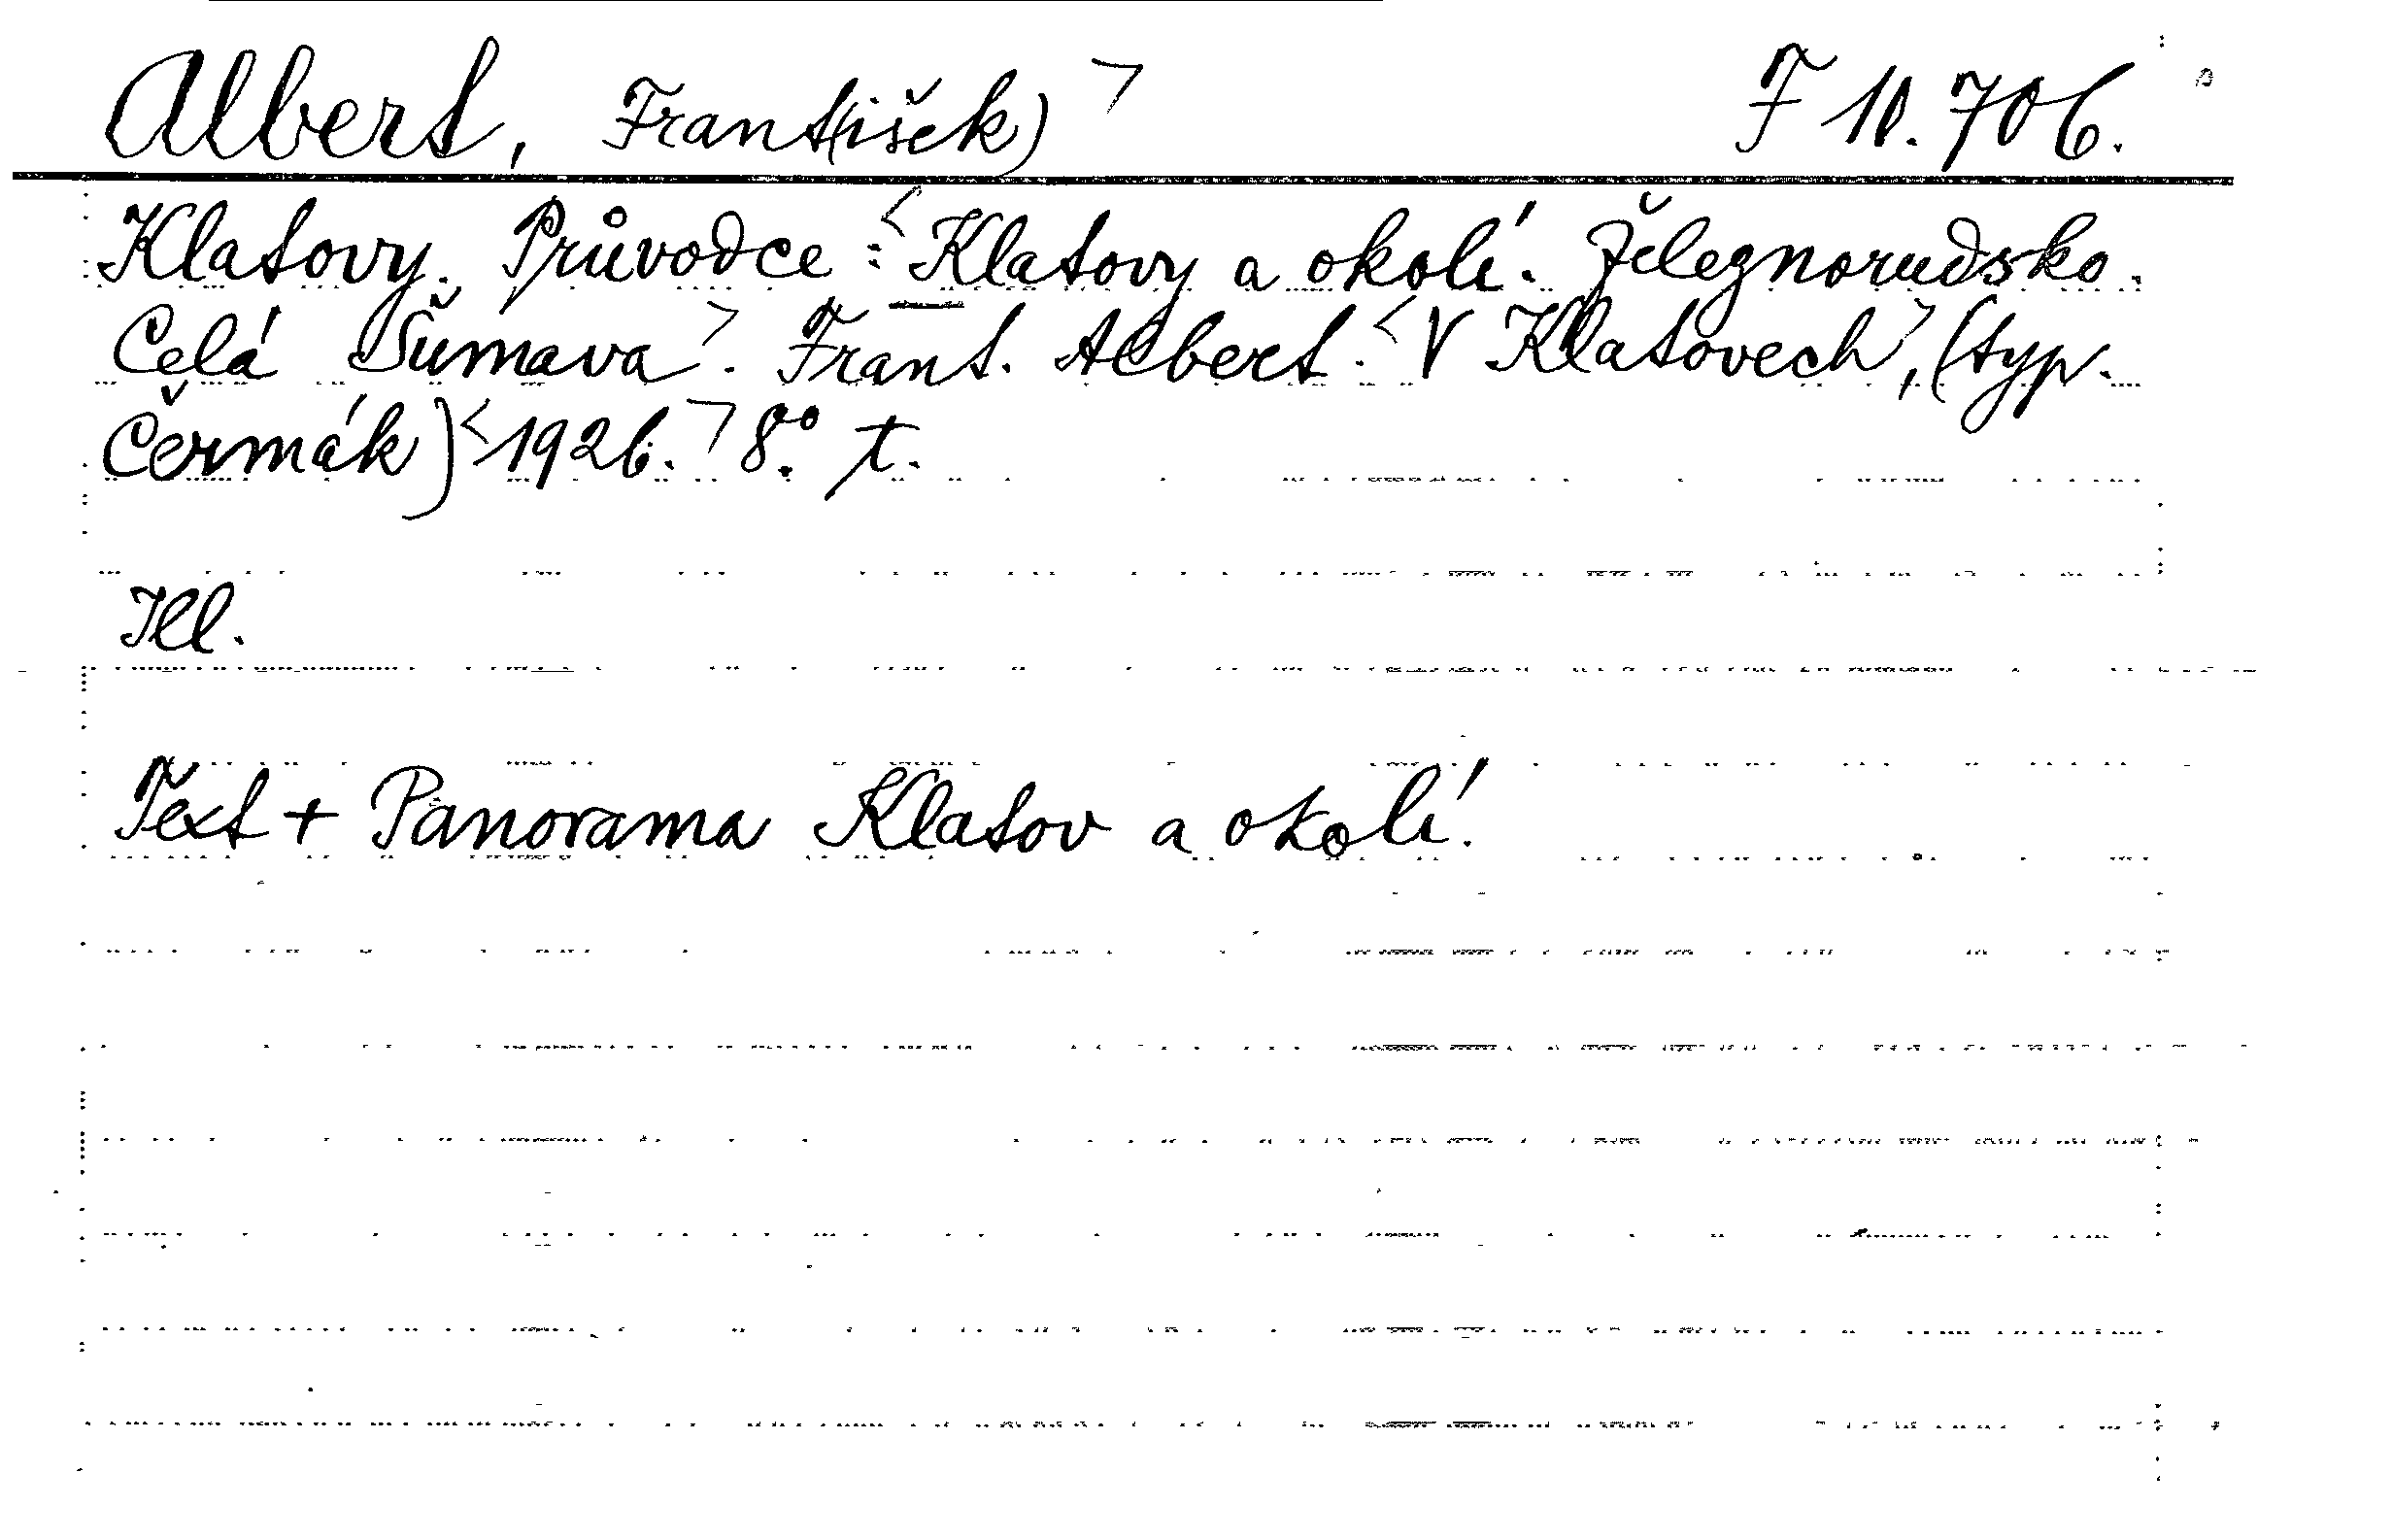 Albert, Frant(išek) > F 10.706.
Klatovy. Průvodce : < Klatovy a okolí. Železnorudsko.
Celá Šumava >. Frant. Albert. < V Klatovech >, (typ.
Čermák) < 1926. > 8°. t.
Ill.
Text + Panorama Klatov a okolí.